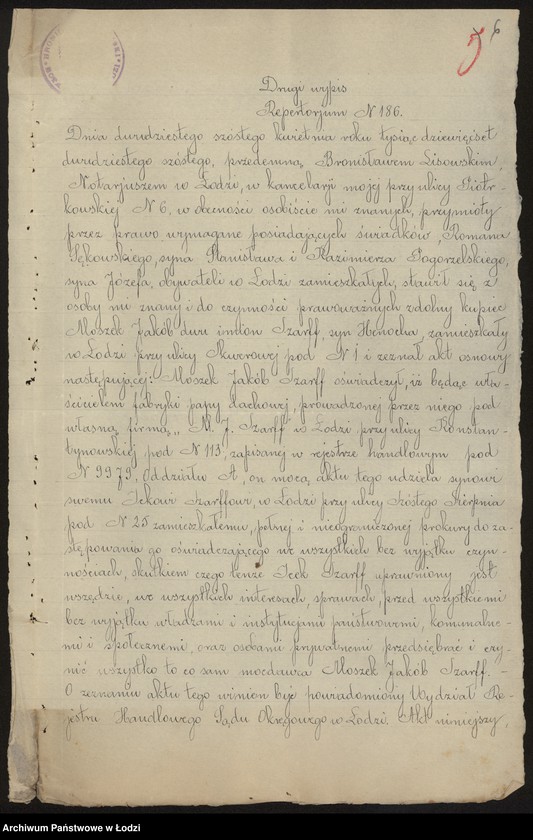 6
Drugi wypis
Repertorjum N 186.
Dnia dwudziestego szóstego kwietnia roku tysiąc dziewięćset
dwudziestego szóstego, przedemną Bronisławem Lisowskim,
Notarjuszem w Łodzi, w kancelarji mojej przy ulicy Piotr-
kowskiej N 6, w obecności osobiście mi znanych, przymioty
przez prawo wymagane posiadających świadków, Romana
Sękowskiego, syna Stanisława i Kazimierza Pogorzelskiego,
syna Józefa, obywateli w Łodzi zamieszkałych, stawił się z
osoby mi znany i do czynności prawoważnych zdolny kupiec
Moszek Jakób dwu imion Szarff, syn Henocha, zamieszkały
w Łodzi przy ulicy Skwerowej pod N 1 i zeznał akt osnowy
następującej: Moszek Jakób Szarff oświadczył, iż będąc wła-
ścicielem fabryki papy dachowej, prowadzonej przez niego pod
własną firmą „M. J. Szarff" w Łodzi przy ulicy Konstan-
tynowskiej pod N 113, zapisanej w rejestrze handlowym pod
N 9979, Oddziału A, on mocą aktu tego udziela synowi
swemu Ickowi Szarffowi, w Łodzi przy ulicy Szóstego Sierpnia
pod N 25 zamieszkałemu, pełnej i nieograniczonej prokury do za-
stępowania go oświadczającego we wszystkich bez wyjątku czyn-
nościach, skutkiem czego tenże Icek Szarff uprawniony jest
wszędzie, we wszystkich interesach, sprawach, przed wszystkiemi
bez wyjątku władzami i instytucjami państwowmi, komunalne-
mi i społecznemi, oraz osobami prywatnemi przedsiębrać i czy-
nić wszystko to co sam mocdawca Moszek Jakób Szarff.-
O zeznaniu aktu tego winien być powiadomiony Wydział Re-
jestru Handlowego Sądu Okręgowego w Łodzi. Akt niniejszy,
Archiwum Państwowe w Łodzi